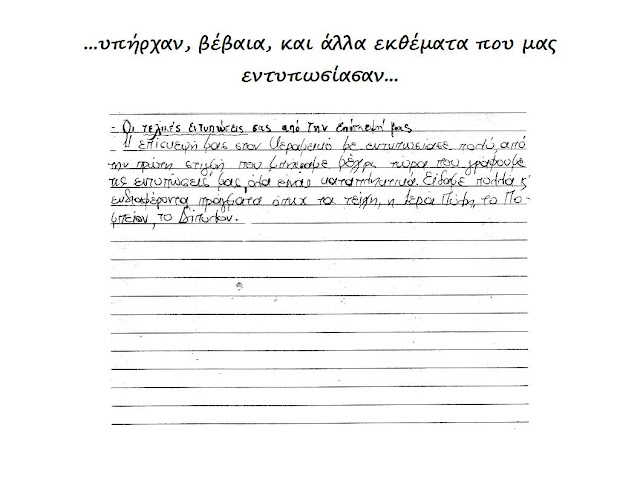 ...υπήρχαν, βέβαια, και άλλα εκθέματα που μας
εντυπωσίασαν...
- Οι τελικές εντυπώσεις σας από την επίσκεψή μας
Η επίσκεψή μας στον Κεραμεικό με εντυπωσίασε πολύ, από
την πρώτη στιγμή που μπήκαμε μέχρι τώρα που γράφουμε
τις εντυπώσεις μας, όλα είναι καταπληκτικά. Είδαμε πολλά κ'
ενδιαφέροντα πράγματα όπως τα τείχη, η Ιερά Πύλη, το Πο-
μπείον, το Δίπυλον.